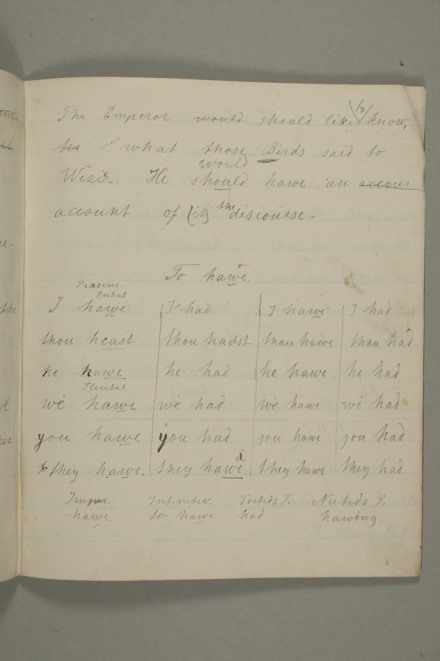 The Emperor would should like to know,
what those Birds said to
would
Wezir. He should hawe an accoun
account of his the discourse.
To hawe
Præsens
I hawe I had I hawe I had
thou heast thou hadst thou hawe thou had
he hawe he had he hawe he had
we hawe we had we hawe we had
you hawe you had you hawe you had
they hawe. they hawe d they hawe they had
Imper. Infinitiv. Fortids P. Nutids P.
hawe to hawe had hawing.